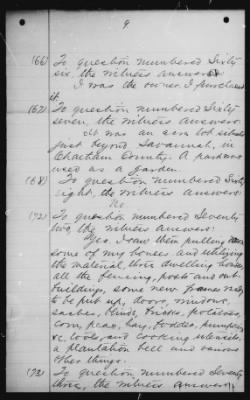 9
(66) To question numbered Sixty
six, the witness answers:
I was the owner. I purchased
it.
(67) To question numbered Sixty
seven, the witness answers:
It was an acre lot
just beyond Savannah, in
Chatham County. A part was
used as a Garden.
(68) To question numbered Sixty
eight, the witness answers:
No.
(72) To question numbered Seventy
two, the witness answers:
Yes. I saw them pulling down
some of my houses and utilizing
the material, three dwelling houses,
all the fencing, posts and out-
buildings, some new frames ready
to be put up, doors, windows,
sashes, blinds, bricks, potatoes,
corn, peas, hay, fodder, pumpkins
&c. tools, and cooking utensils,
a plantation bell and various
other things.
(73) To question numbered Seventy
three, the witness answers: